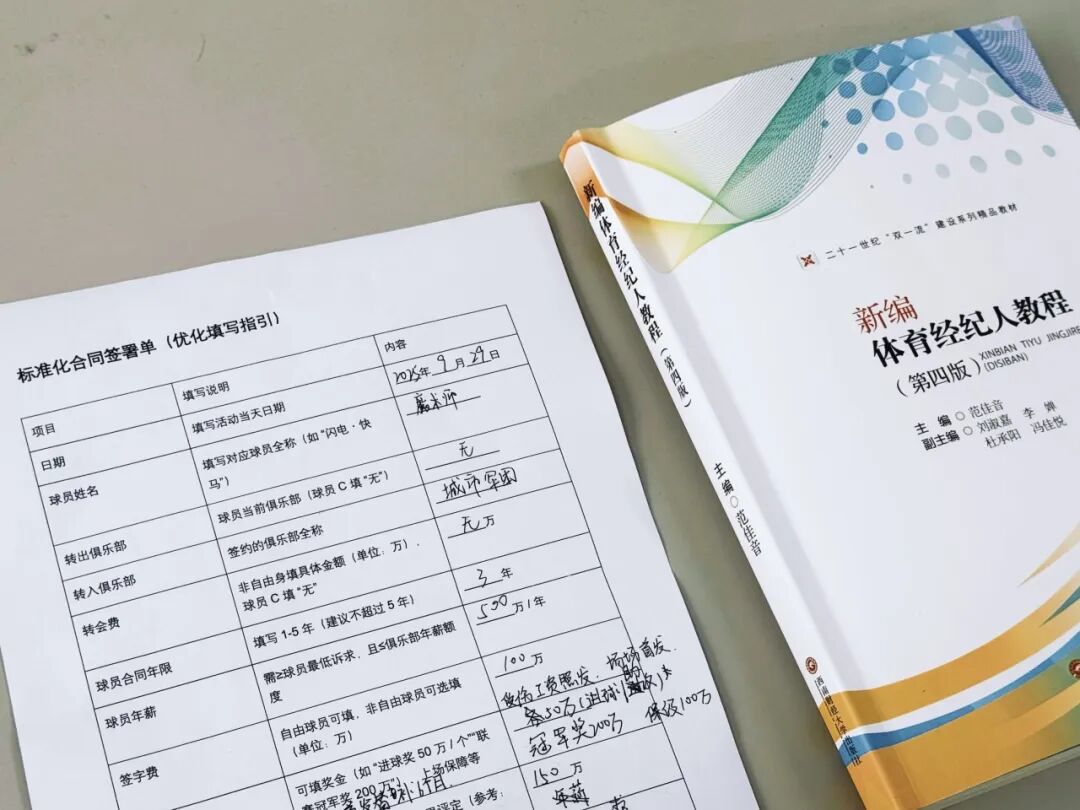 标准化合同签署单（优化填写指引）
项目
填写说明
内容
日期
填写活动当天日期
2025年 9月 29日
球员姓名
填写对应球员全称（如“闪电·快
马”）
魔术师
转出俱乐部
球员当前俱乐部（球员 C 填“无”）
无
转入俱乐部
签约的俱乐部全称
城市军团
转会费
非自由身填具体金额（单位：万），
球员 C 填“无”
无万
球员合同年限
填写 1-5 年（建议不超过 5 年）
3 年
球员年薪
需≥球员最低诉求，且≤俱乐部年薪额
度
500 万/年
签字费
自由球员可填，非自由球员可选填
（单位：万）
100 万
可填奖金（如“进球奖 50 万/个”“联
赛冠军奖 200 万”）、上场保障等
受伤工资照发. 场场首发.
50万(进球/助
冠军奖200万 保级100万
评定（参考：
150 万
新编体育经纪人教程（第四版）
主编○范佳音
西南财经大学出版社
二十一世纪“双一流”建设系列精品教材
新编
体育经纪人教程
（第四版）
XINBIAN TIYU JINGJIRE
(DISIBAN)
主 编○范佳音
副主编○刘淑嘉 李 婵
杜承阳 冯佳悦